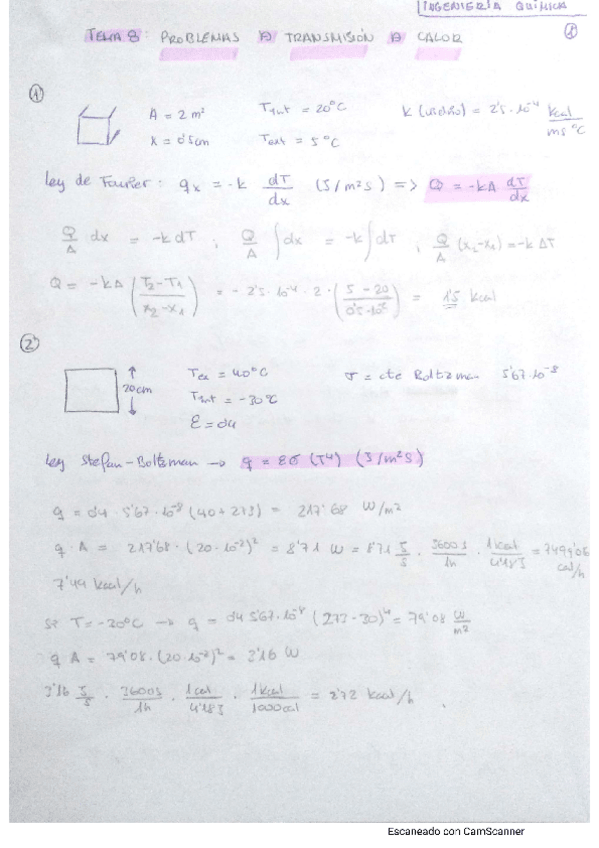 INGENIERÍA QUÍMICA
TEMA 8: PROBLEMAS D TRANSMISIÓN D CALOR
①
A = 2 m²
T int = 20°C
k (vidrio) = 2'5·10⁻⁴ kcal / m s °C
x = 0'5cm
T ext = 5°C
Ley de Fourier: qx = -k dT/dx (J/m²s) => Q = -kA dT/dx
Q/A dx = -k dT ; Q/A ∫dx = -k∫dT ; Q/A (x₂-x₁) = -k ΔT
Q = -kA (T₂-T₁ / x₂-x₁) = -2'5·10⁻⁴·2·(5-20 / 0'5·10⁻²) = 1'5 kcal
②
20cm
T ex = 40°C
σ = cte Boltzman 5'67·10⁻⁸
T int = -30°C
ε = 0'4
Ley Stefan-Boltzman → q = εσ (T⁴) (J/m²s)
q = 0'4 · 5'67·10⁻⁸ (40+273) = 217'68 W/m²
q·A = 217'68·(20·10⁻²)² = 8'71 W = 8'71 J/s · 3600s/1h · 1kcal/4'18J = 7499'06 cal/h
7'49 kcal/h
si T = -30°C → q = 0'4 5'67·10⁻⁸ (273-30)⁴ = 79'08 W/m²
q A = 79'08·(20·10⁻²)² = 3'16 W
3'16 J/s · 3600s/1h · 1cal/4'18J · 1kcal/1000cal = 2'72 kcal/h
Escaneado con CamScanner